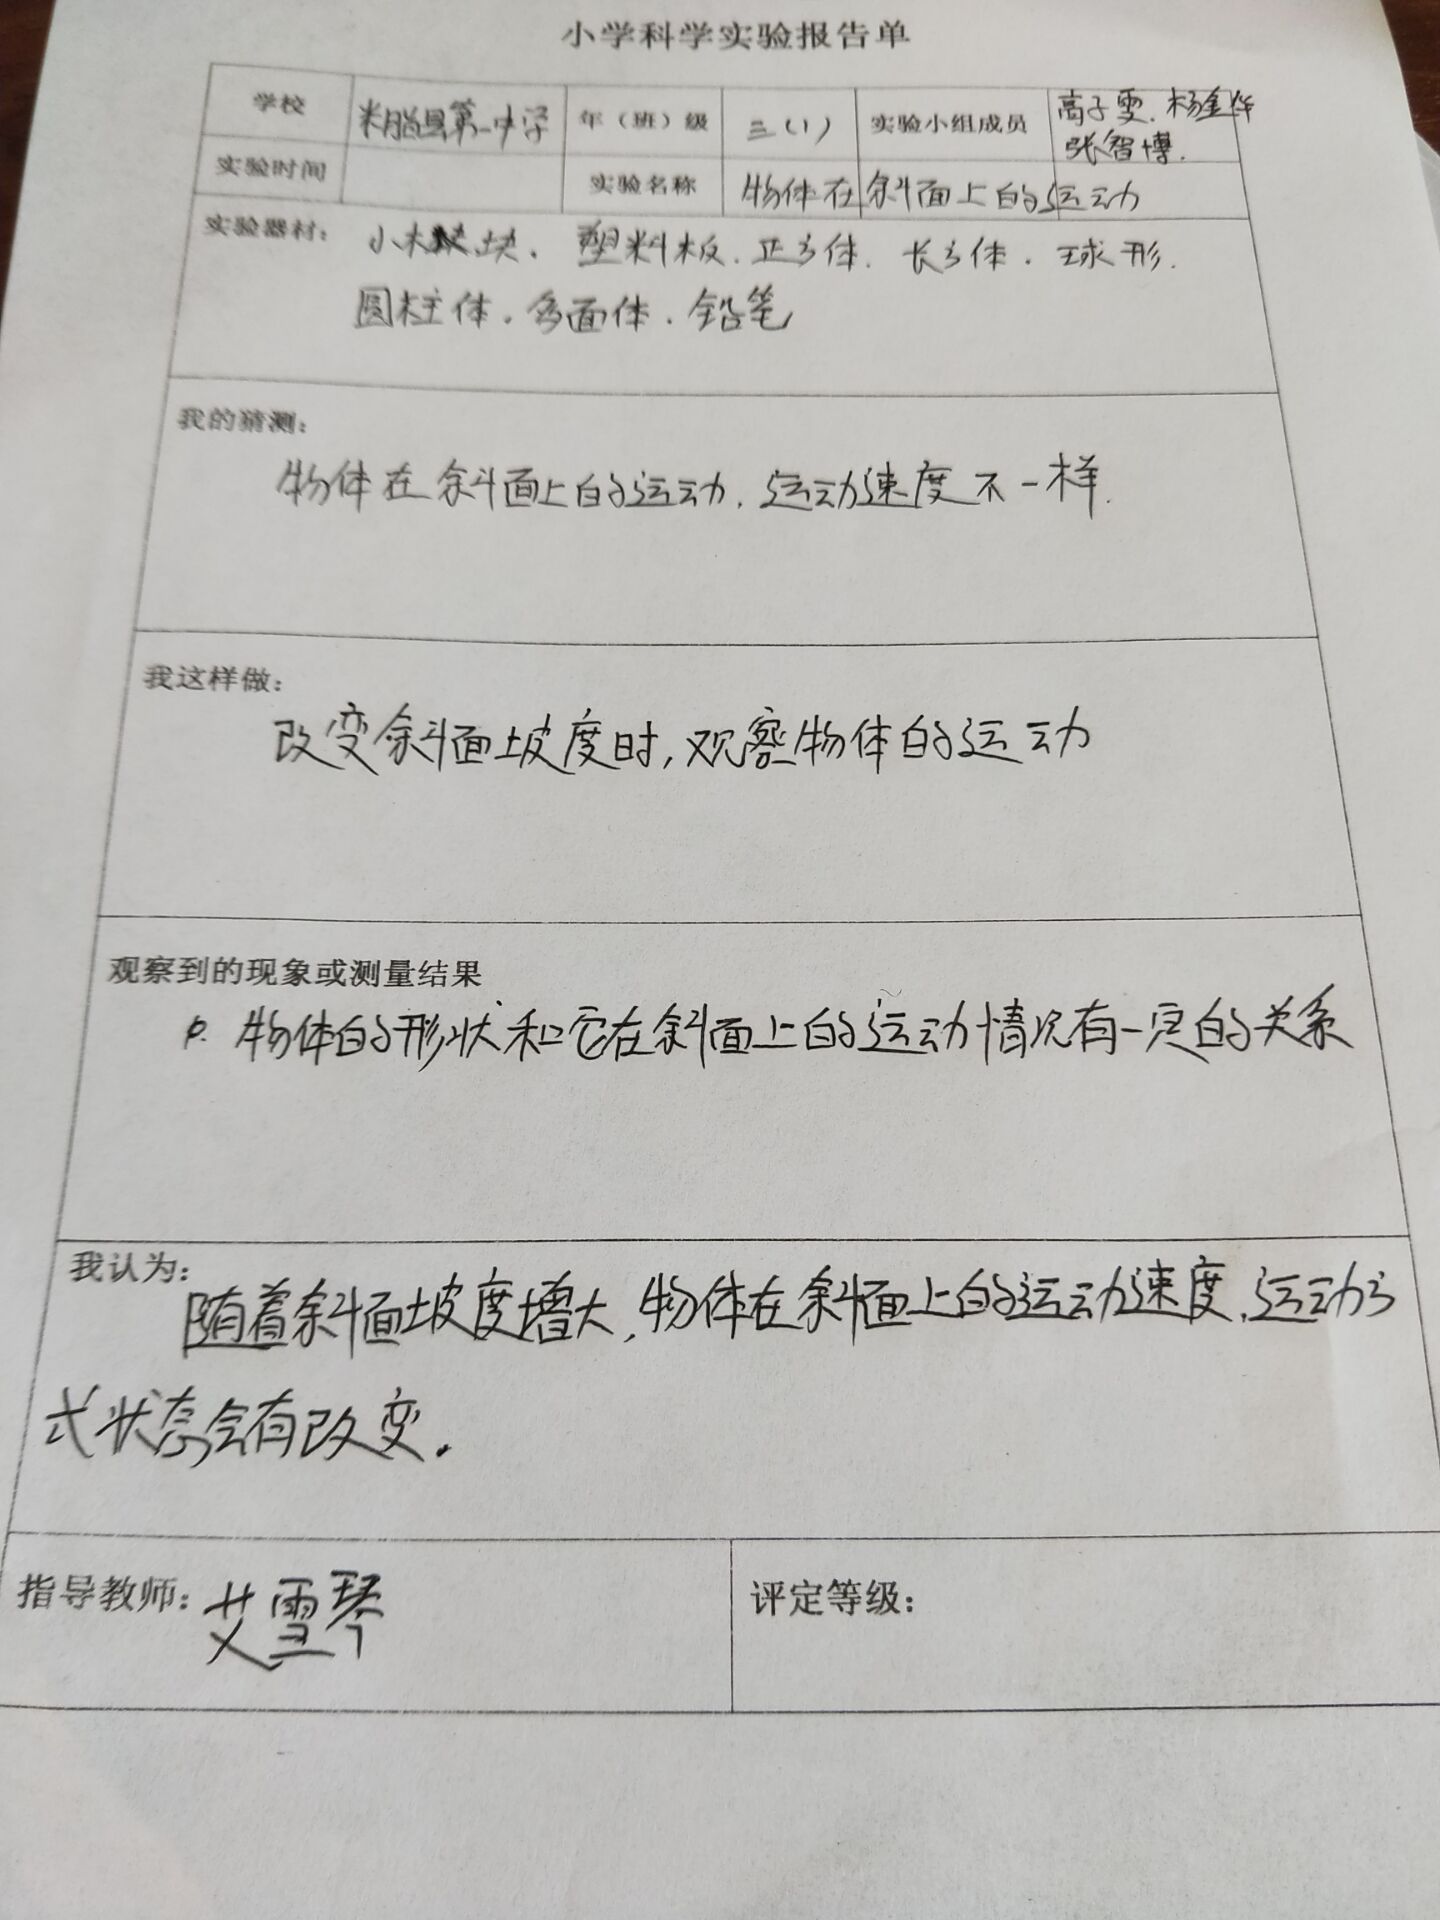 小学科学实验报告单
学校 米脂县第一中学 年（班）级 三（1） 实验小组成员 高子雯.杨金华
张智博.
实验时间 实验名称 物体在斜面上的运动
实验器材： 小木块.塑料板.正方体.长方体.球形.
圆柱体.多面体.铅笔
我的猜测：
物体在斜面上的运动.运动速度不一样.
我这样做：
改变斜面坡度时,观察物体的运动
观察到的现象或测量结果
物体的形状和它在斜面上的运动情况有一定的关系
我认为：
随着斜面坡度增大,物体在斜面上的运动速度.运动方
式状态会有改变.
指导教师： 艾雪琴 评定等级：